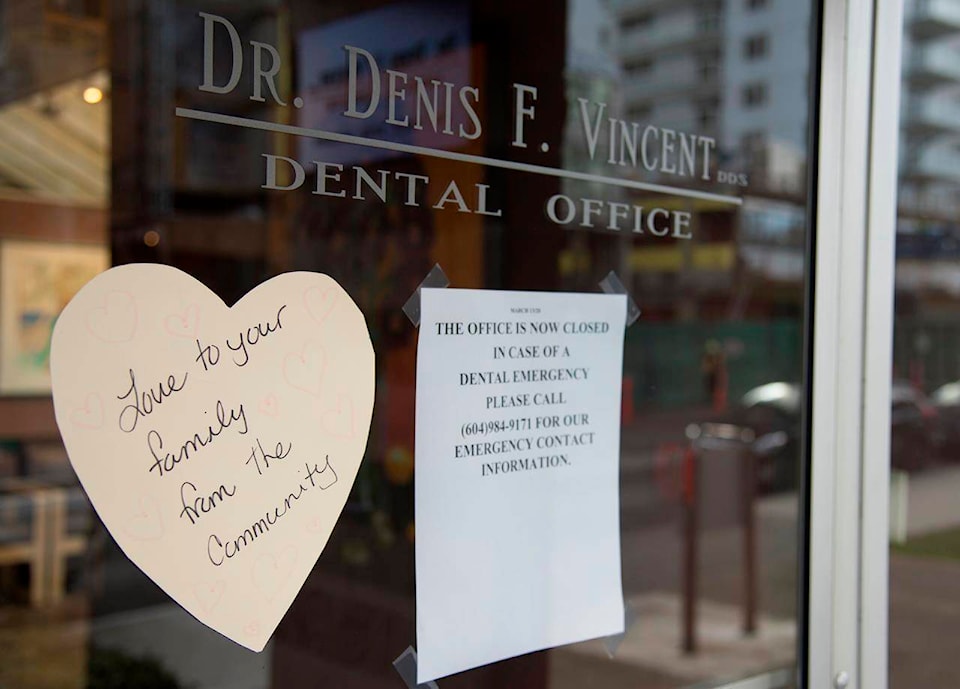 DR. DENIS F. VINCENT DDS
DENTAL OFFICE
Love to your
family
from The
Community
MARCH 15/20
THE OFFICE IS NOW CLOSED
IN CASE OF A
DENTAL EMERGENCY
PLEASE CALL
(604)984-9171 FOR OUR
EMERGENCY CONTACT
INFORMATION.